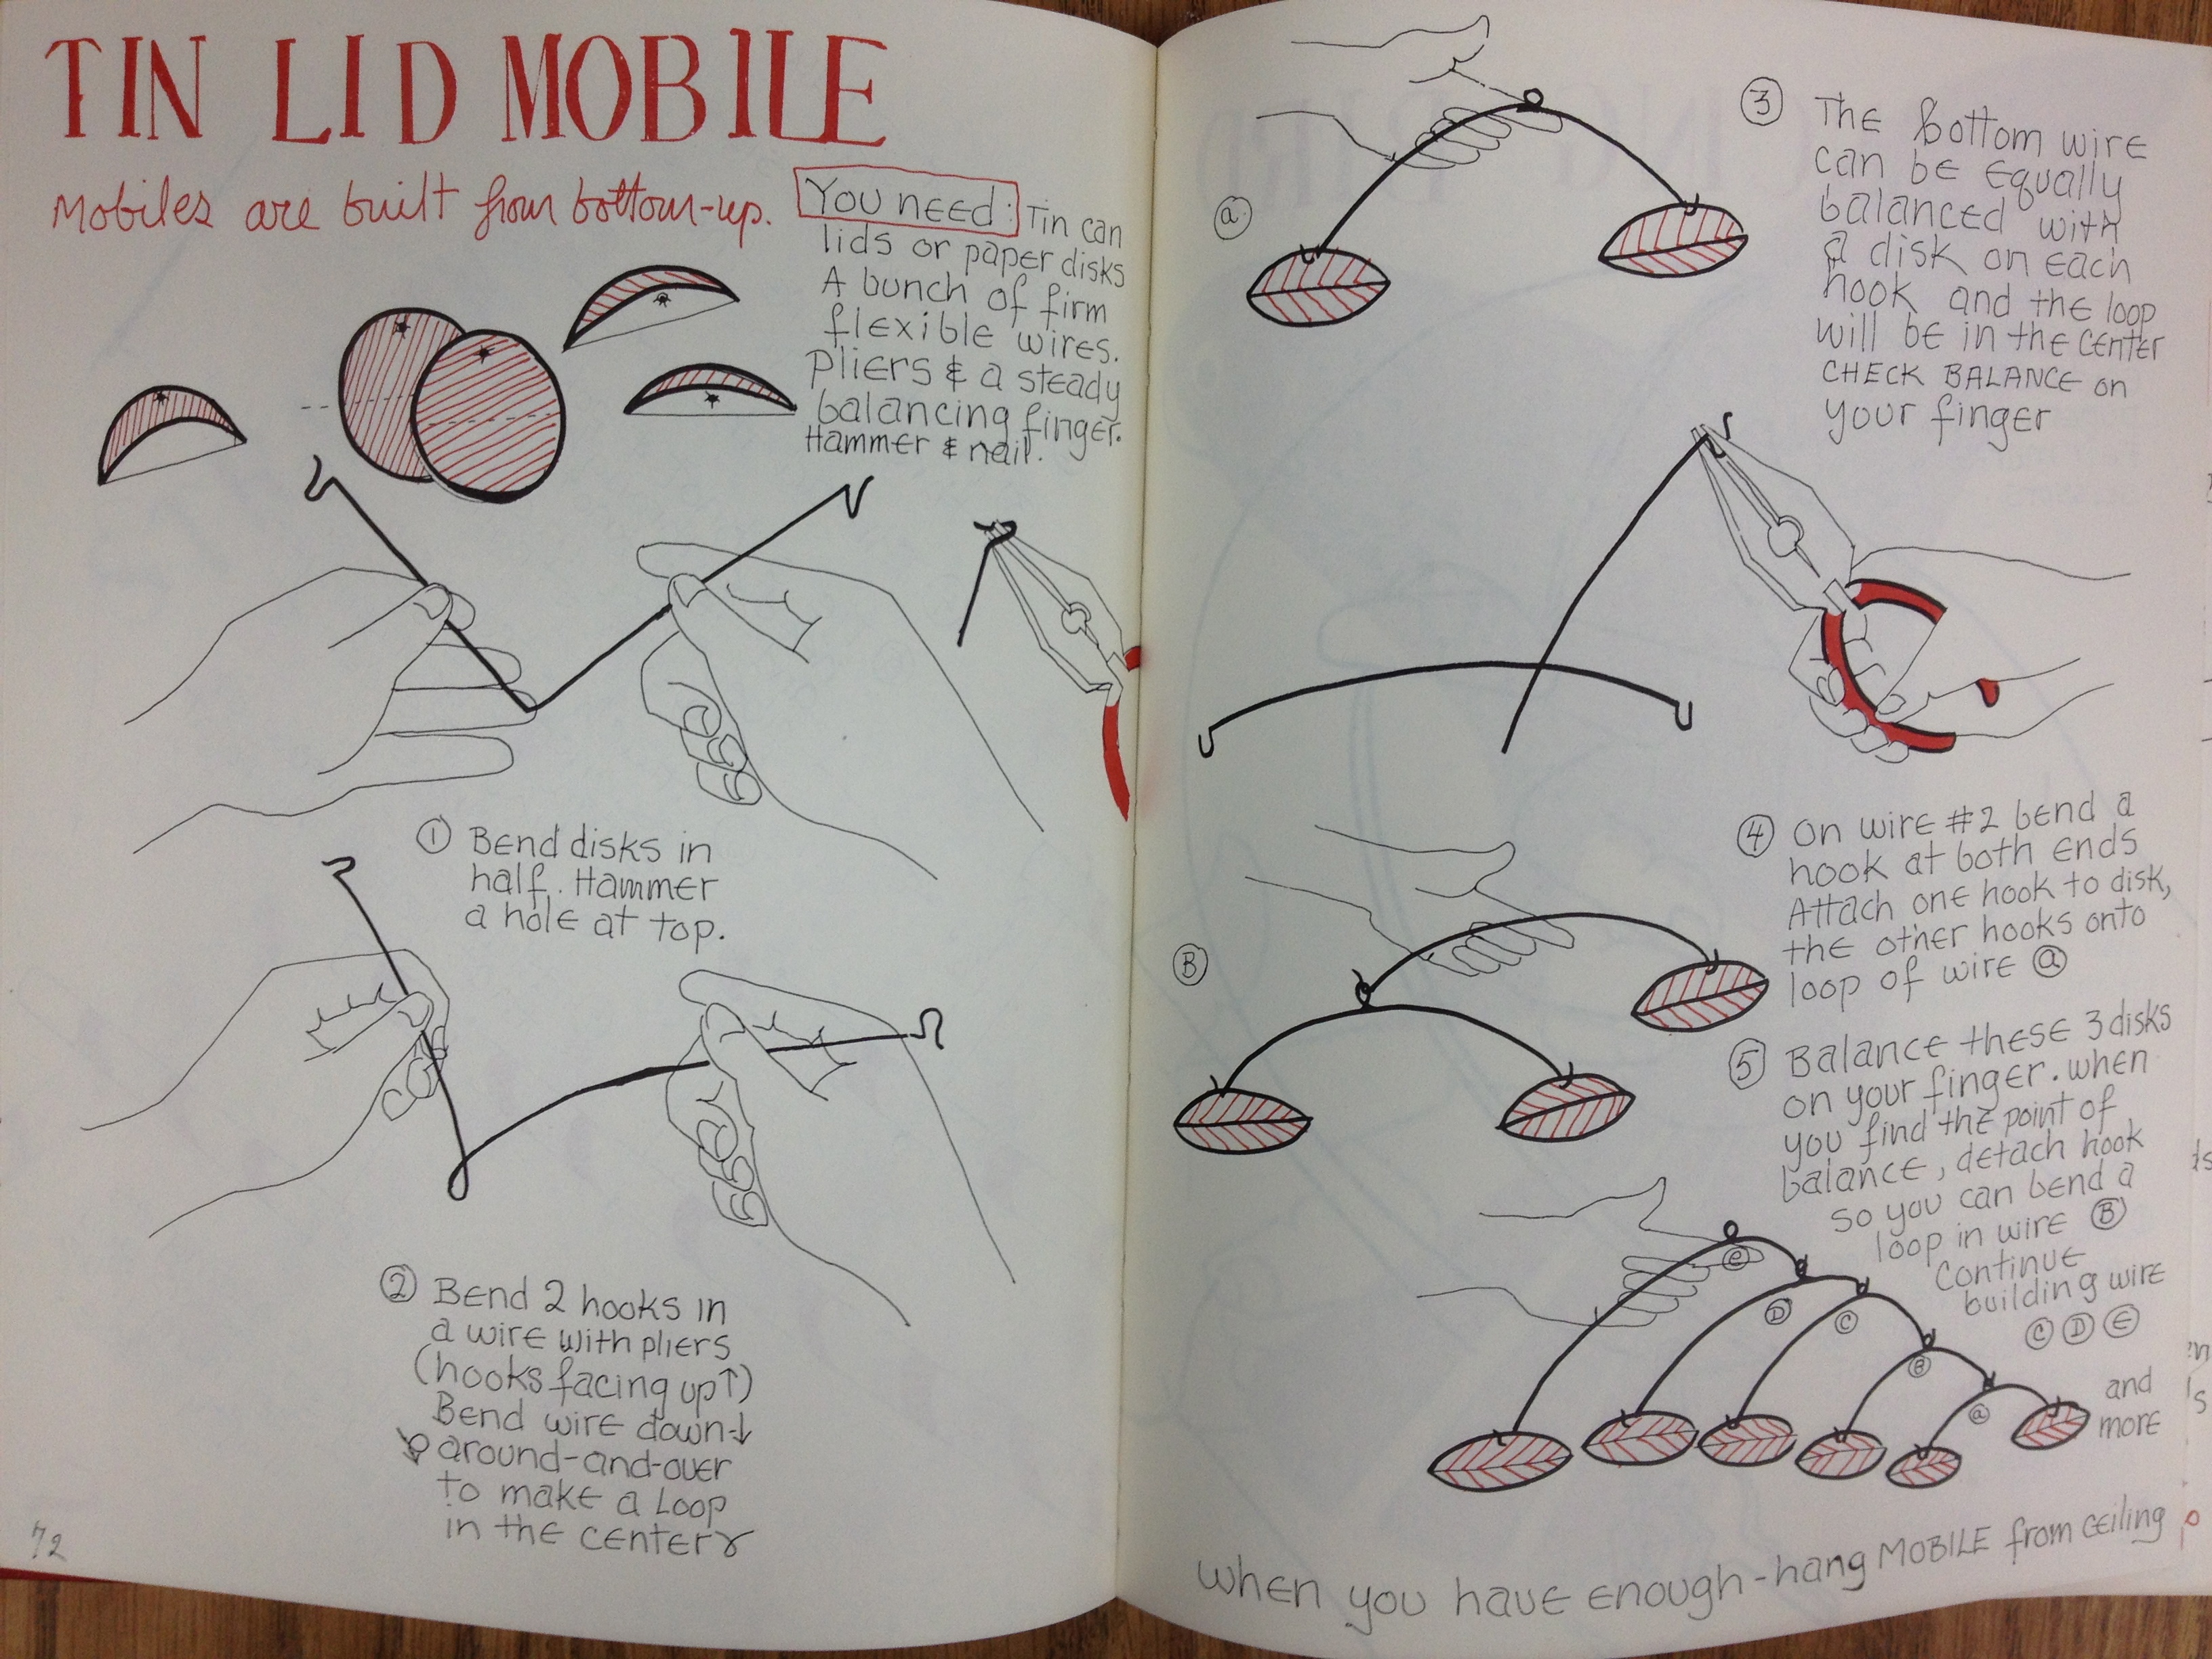 TIN LID MOBILE
Mobiles are built from bottom-up.
You need: Tin can
lids or paper disks
A bunch of firm
flexible wires.
Pliers & a steady
balancing finger.
Hammer & nail.
① Bend disks in
half. Hammer
a hole at top.
② Bend 2 hooks in
a wire with pliers
(hooks facing up↑)
Bend wire down↓
around-and-over
to make a Loop
in the center
72
③ The bottom wire
can be equally
balanced with
a disk on each
hook and the loop
will be in the center
CHECK BALANCE on
your finger
ⓐ
④ On wire #2 bend a
hook at both ends
Attach one hook to disk,
the other hooks onto
loop of wire ⓐ
Ⓑ
⑤ Balance these 3 disks
on your finger. when
you find the point of
balance, detach hook
so you can bend a
loop in wire Ⓑ
Continue
building wire
Ⓒ Ⓓ Ⓔ
and
more
ⓔ
Ⓓ
Ⓒ
Ⓑ
ⓐ
when you have enough-hang MOBILE from ceiling